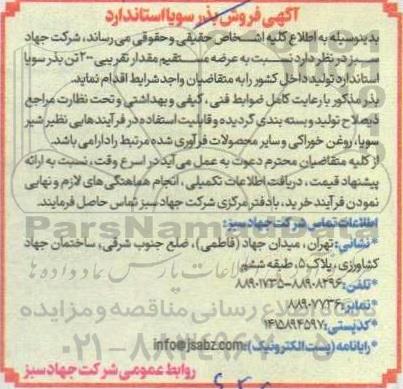 آگهی فروش بذر سویا استاندارد
بدینوسیله به اطلاع کلیه اشخاص حقیقی و حقوقی می رساند، شرکت جهاد
سبز در نظر دارد نسبت به عرضه مستقیم مقدار تقریبی ۲۰۰ تن بذر سویا
استاندارد تولید داخل کشور را به متقاضیان واجد شرایط اقدام نماید.
بذر مذکور با رعایت کامل ضوابط فنی، کیفی و بهداشتی و تحت نظارت مراجع
ذیصلاح تولید و بسته بندی گردیده و قابلیت استفاده در فرآیندهایی نظیر شیر
سویا، روغن خوراکی و سایر محصولات فرآوری شده مرتبط را دارا می باشد.
از کلیه متقاضیان محترم دعوت به عمل می آید در اسرع وقت، نسبت به ارائه
پیشنهاد قیمت، دریافت اطلاعات تکمیلی، انجام هماهنگی های لازم و نهایی
نمودن فرآیند خرید، با دفتر مرکزی شرکت جهاد سبز تماس حاصل فرمایند.
اطلاعات تماس شرکت جهاد سبز:
*نشانی: تهران، میدان جهاد (فاطمی)، ضلع جنوب شرقی، ساختمان جهاد
کشاورزی، پلاک ۵، طبقه ششم
*تلفن: ۸۸۹۰۸۲۹۶-۸۸۹۰۱۷۳۵
*نمابر: ۸۸۹۰۷۷۳۶
*کدپستی: ۱۴۱۵۸۹۴۵۹۷
*رایانامه (پست الکترونیک): info@jsabz.com
روابط عمومی شرکت جهاد سبز
ParsNamadData
پایگاه اطلاع رسانی مناقصه و مزایده